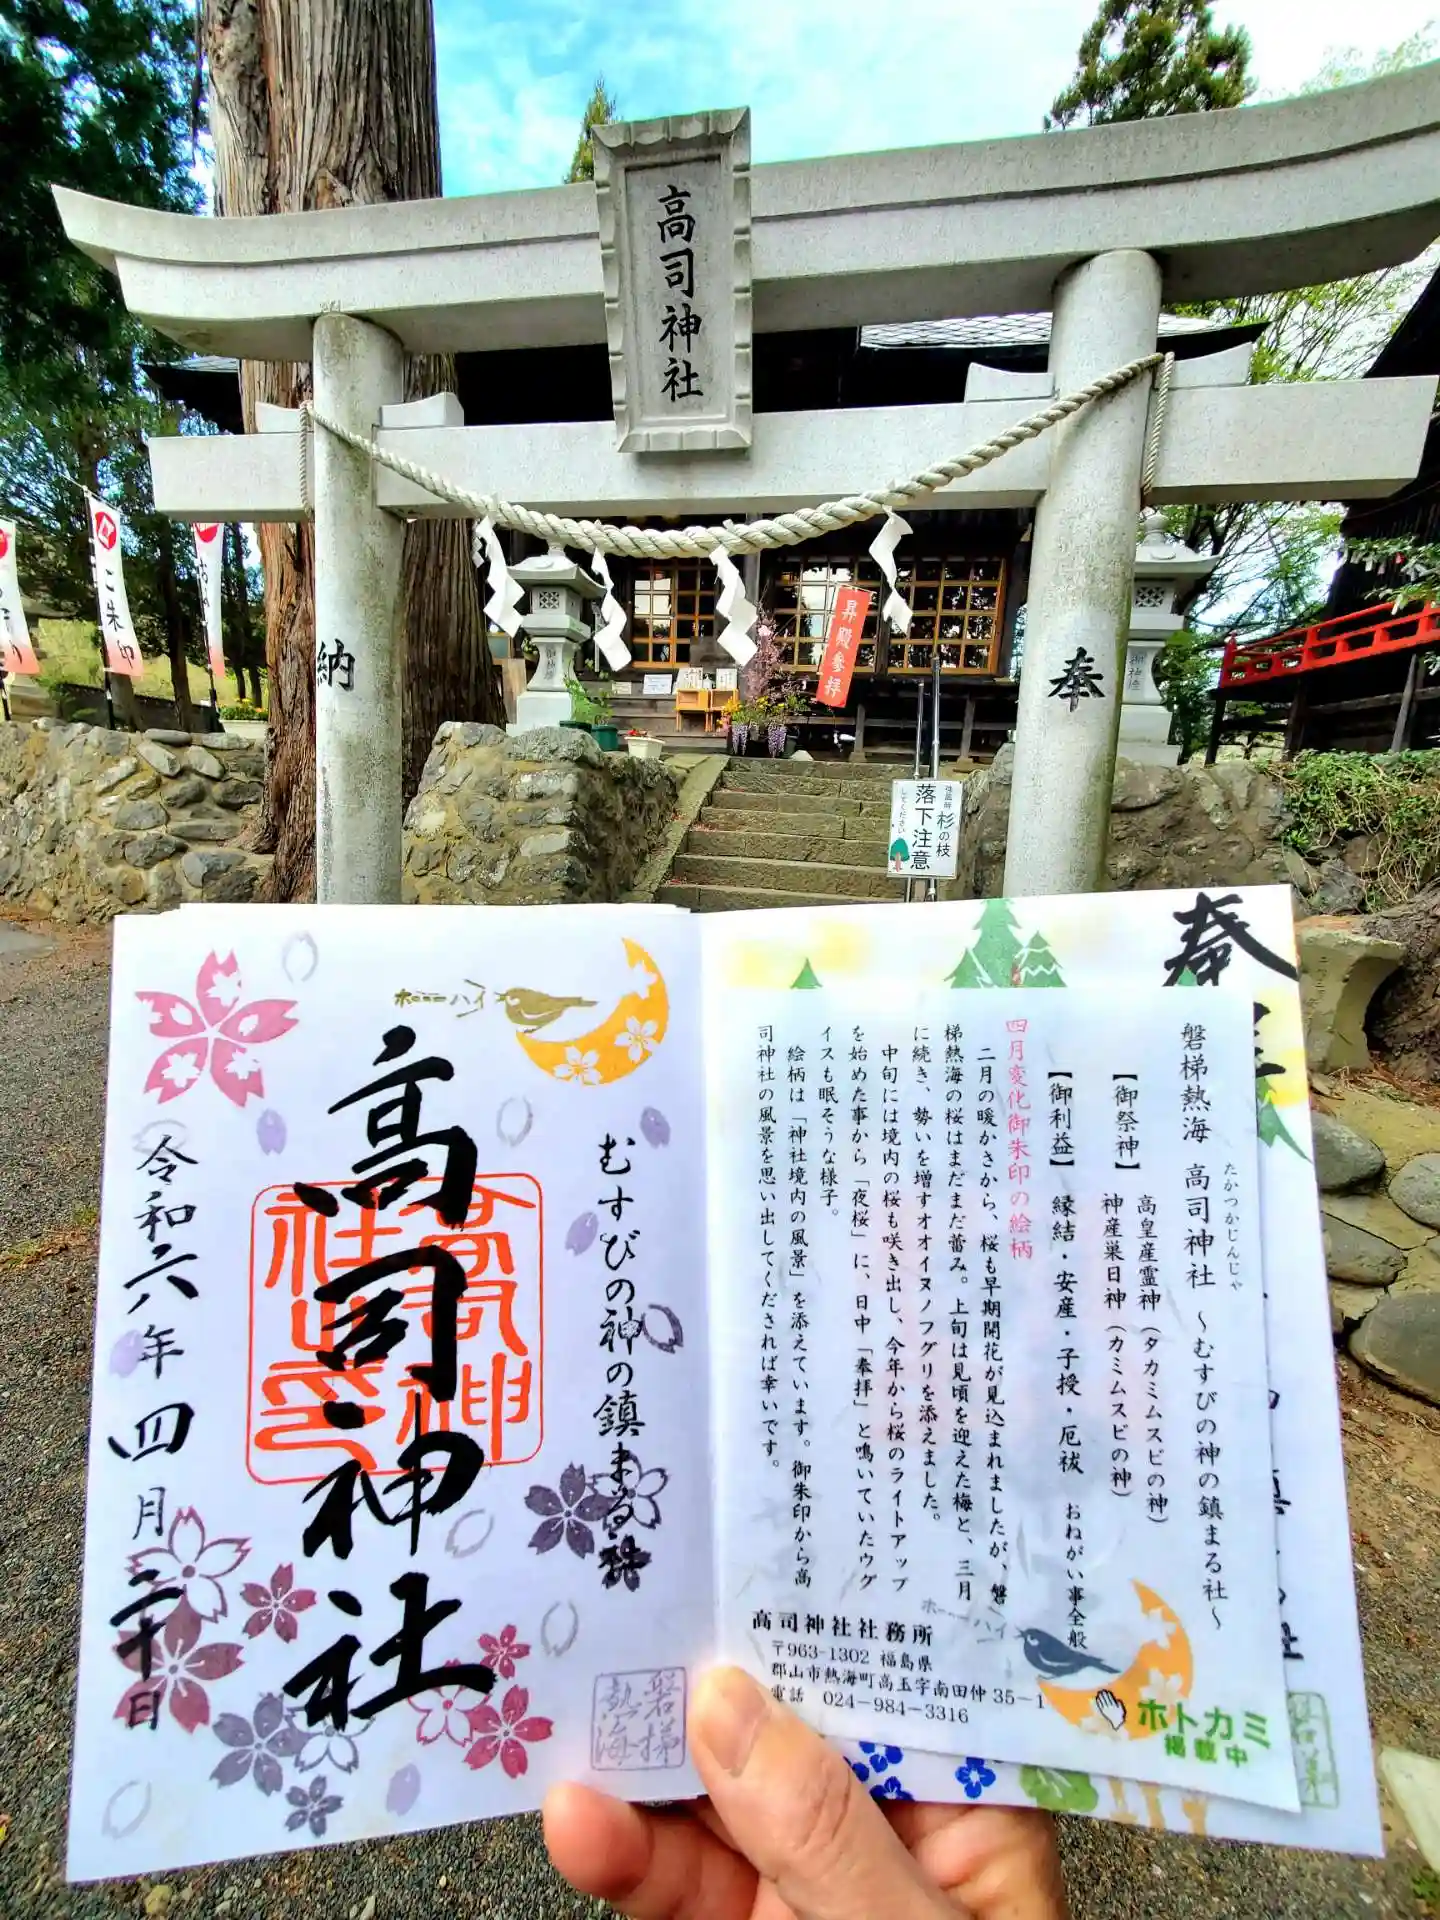 高司神社
納
奉
ご朱印
昇殿参拝
御神燈
強風時
杉の枝
落下注意
してください
ホーーーハイ
むすびの神の鎮まる社
高司神社
令和六年四月三十日
磐梯
熱海
奉
磐梯熱海 高司神社 ~むすびの神の鎮まる社~
たかつかじんじゃ
【御祭神】 高皇産霊神(タカミムスビの神)
神産巣日神(カミムスビの神)
【御利益】 縁結・安産・子授・厄祓 おねがい事全般
四月変化御朱印の絵柄
二月の暖かさから、桜も早期開花が見込まれましたが、磐
梯熱海の桜はまだまだ蕾み。上旬は見頃を迎えた梅と、三月
に続き、勢いを増すオオイヌノフグリを添えました。
中旬には境内の桜も咲き出し、今年から桜のライトアップ
を始めた事から「夜桜」に、日中「奉拝」と鳴いていたウグ
イスも眠そうな様子。
絵柄は「神社境内の風景」を添えています。御朱印から高
司神社の風景を思い出してくだされば幸いです。
高司神社社務所
〒963-1302 福島県
郡山市熱海町高玉字南田仲 35-1
電話 024-984-3316
ホーーーハイ
ホトカミ
掲載中